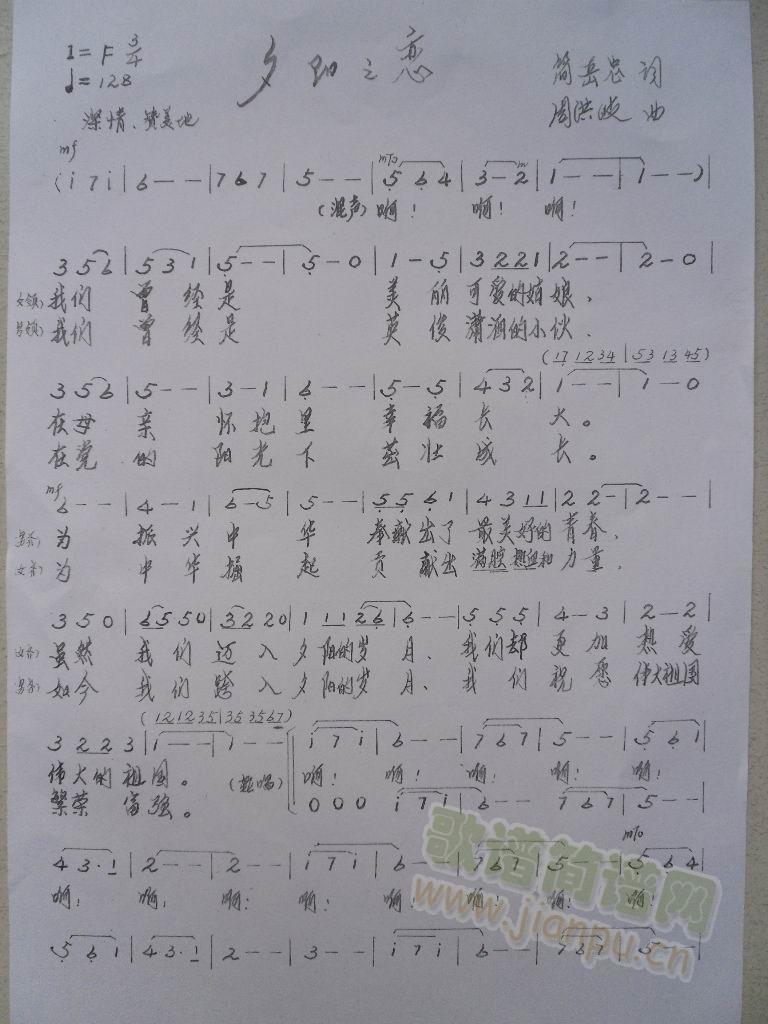 1=F 3/4
♩=128
夕阳之恋
简岳忠 词
周洪岐 曲
深情、赞美地
mf
(i 7 i | 6 - - | 7 6 7 | 5 - - | 5 6 4 | 3 - 2 | 1 - - | 1 - - ) |
(混声) 啊! 啊! 啊!
3 5 6 | 5 3 1 | 5 - - | 5 - 0 | 1 - 5 | 3 2 2 1 | 2 - - | 2 - 0 |
女领) 我们 曾经是 美丽可爱的姑娘、
男领) 我们 曾经是 英俊潇洒的小伙.
(17 1234 | 53 13 45)
3 5 6 | 5 - - | 3 - 1 | 6 - - | 5 - 5 | 4 3 2 | 1 - - | 1 - 0
在母亲 怀抱里 幸福长大。
在党的 阳光下 茁壮成长。
mf
6 - - | 4 - 1 | 6 - 5 | 5 - - | 5 5 6 1 | 4 3 1 1 | 2 2 - | 2 - - |
为 振兴中华 奉献出了 最美好的青春,
为 中华掘起 贡献出 满腔热血和力量.
3 5 0 | 6 5 5 0 | 3 2 2 0 | 1 1 1 2 6 | 6 - - | 5 5 5 | 4 - 3 | 2 - 2
虽然 我们 迈入夕阳的岁月、我们却更加热爱
如今 我们 跨入夕阳的岁月、我们祝愿 伟大祖国
(12 12 35 | 35 35 67)
3 2 2 3 | 1 - - | 1 - - | i 7 i | 6 - - | 7 6 7 | 5 - - | 5 6 1 |
伟大的祖国。 啊! 啊! 啊! 啊! 啊!
繁荣富强。
0 0 0 | i 7 i | 6 - - | 7 6 7 | 5 - - |
4 3 · 1 | 2 - - | 2 - - | i 7 i | 6 - - | 7 6 7 | 5 - - | 5 6 4 |
啊! 啊! 啊! 啊! 啊! 啊! 啊! 啊!
5 6 1 | 4 3 · 1 | 2 - - | 3 - - | i 7 i | 6 - - | 7 6 7 | 5 - - |
歌谱简谱网
www.jianpu.cn